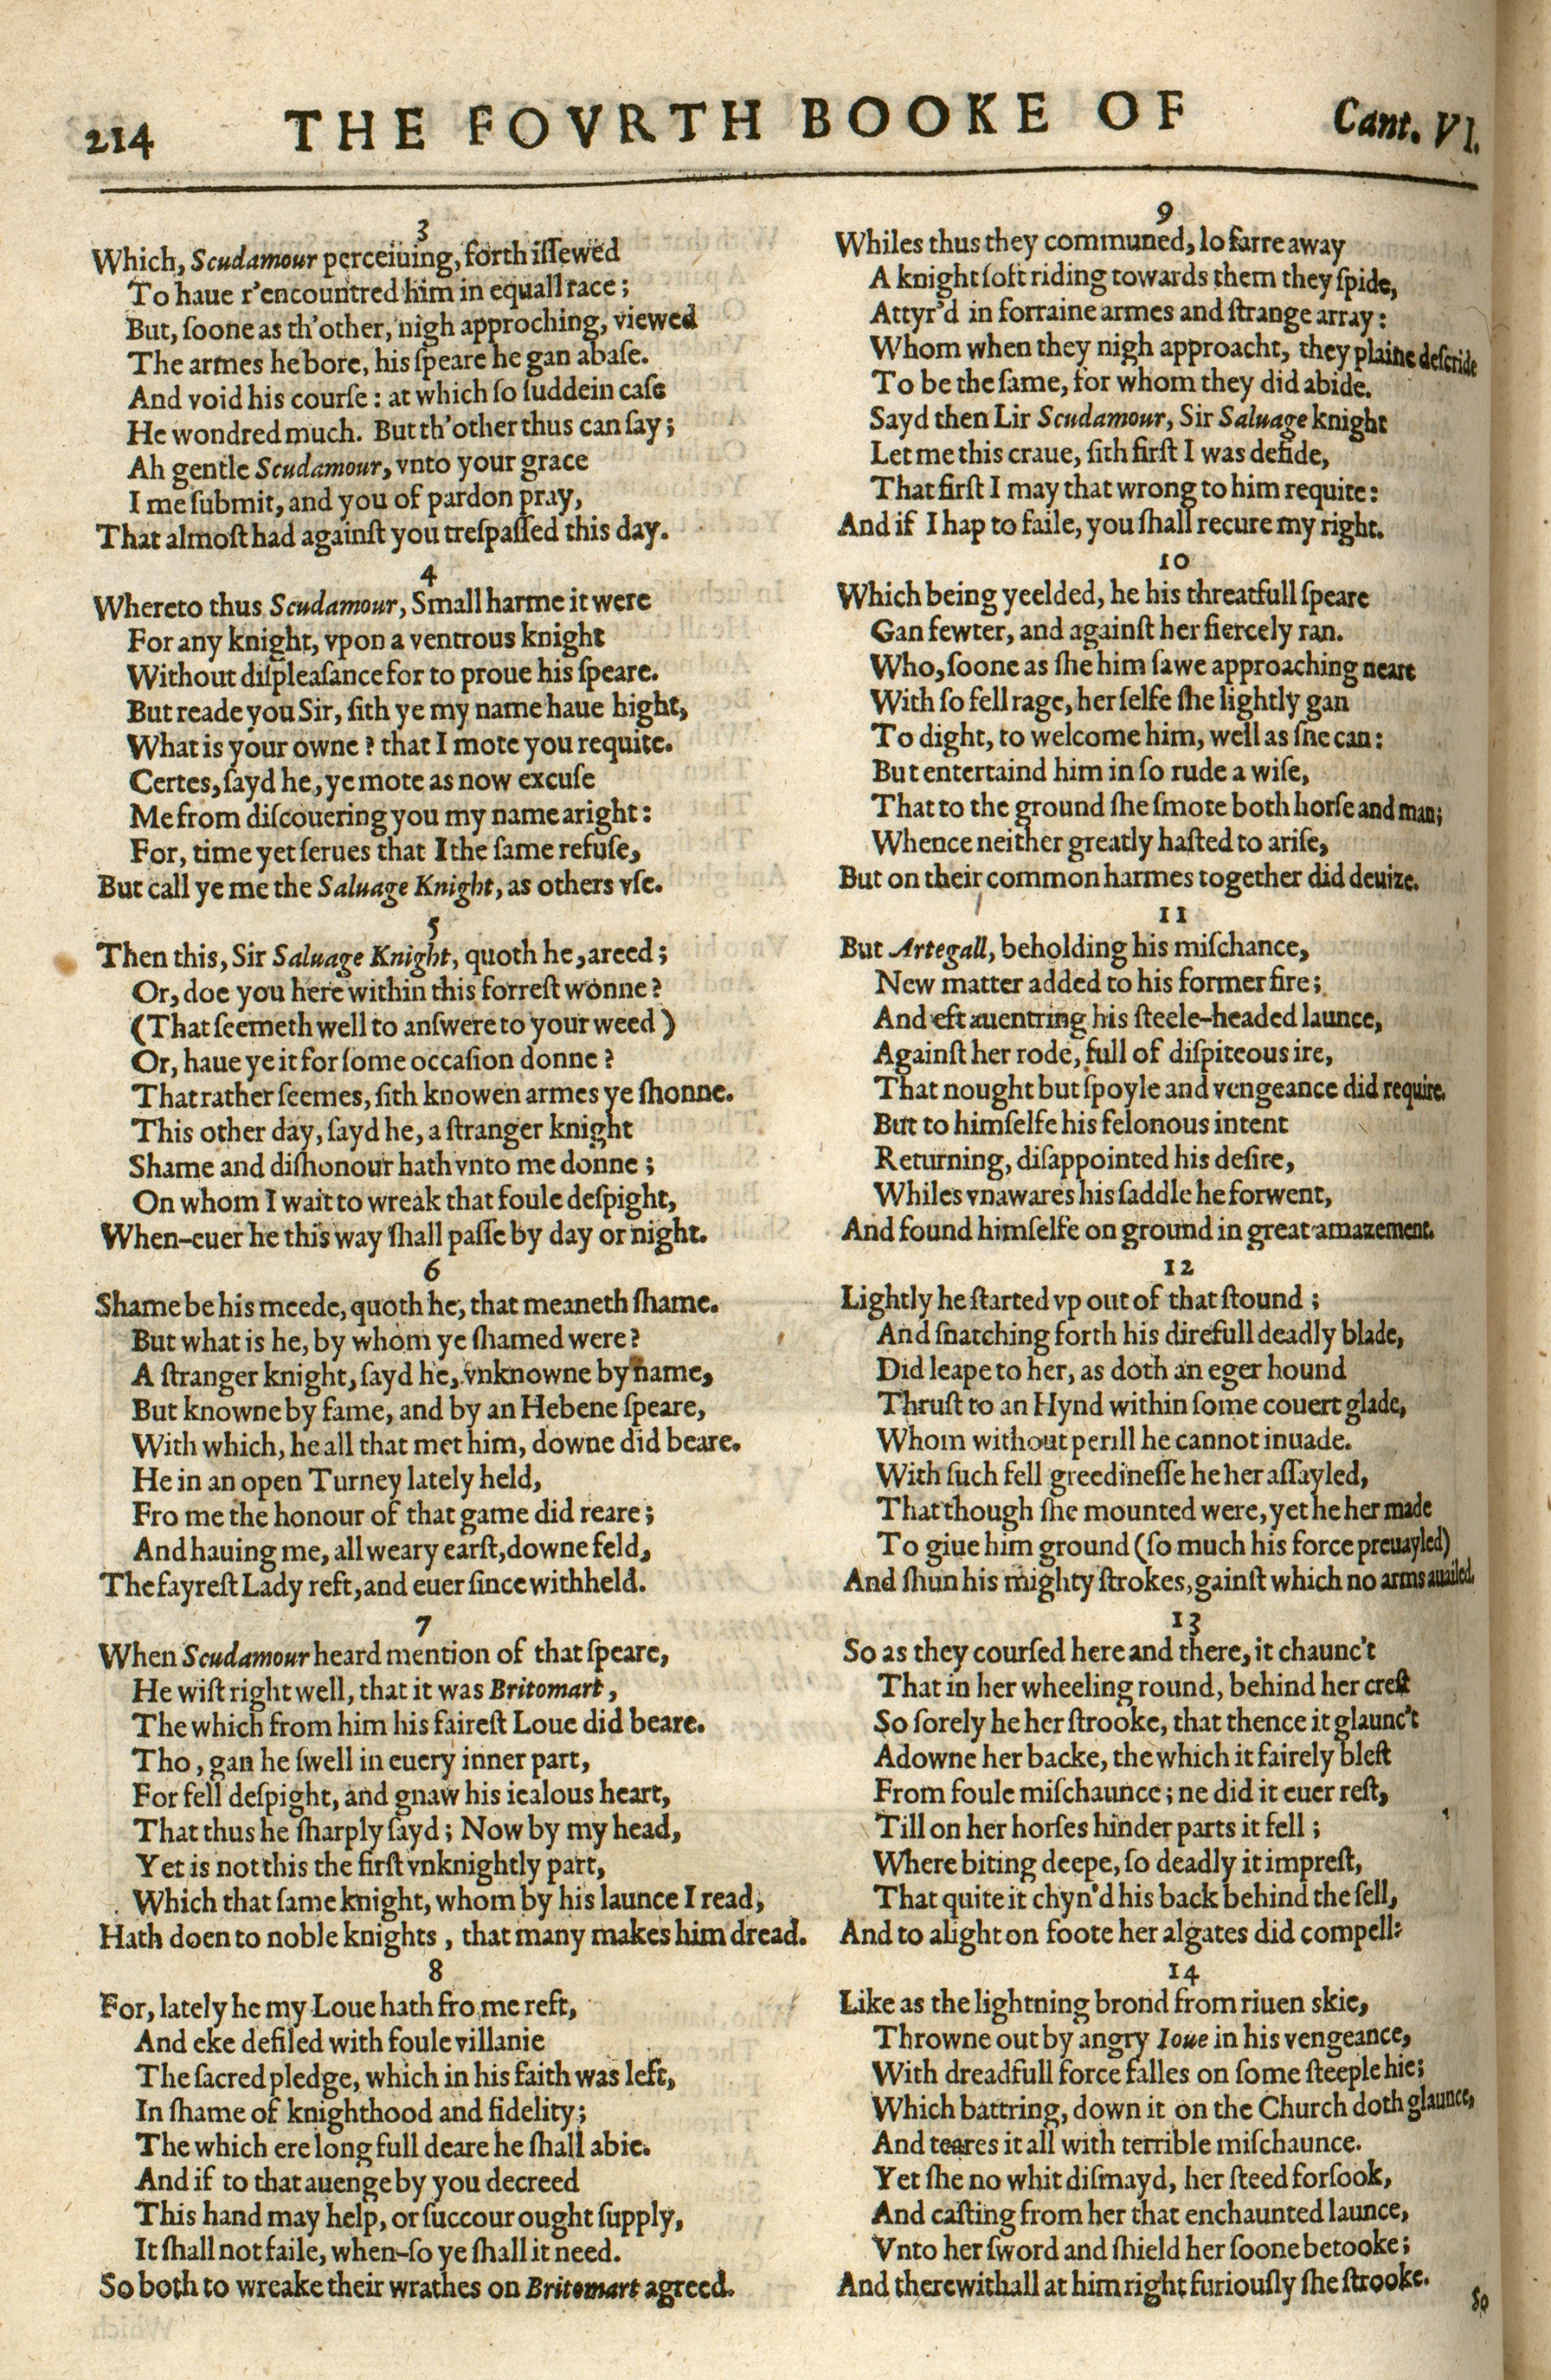 214 THE FOVRTH BOOKE OF Cant. VI.
3
Which, Scudamour perceiuing, forth iſſewed
To haue r'encountred him in equall race;
But, ſoone as th'other, nigh approching, viewed
The armes he bore, his ſpeare he gan abaſe.
And void his courſe: at which ſo ſuddein caſe
He wondred much. But th'other thus can ſay;
Ah gentle Scudamour, vnto your grace
I me ſubmit, and you of pardon pray,
That almoſt had againſt you treſpaſſed this day.
4
Whereto thus Scudamour, Small harme it were
For any knight, vpon a ventrous knight
Without diſpleaſance for to proue his ſpeare.
But reade you Sir, ſith ye my name haue hight,
What is your owne? that I mote you requite.
Certes, ſayd he, ye mote as now excuſe
Me from diſcouering you my name aright:
For, time yet ſerues that I the ſame refuſe,
But call ye me the Saluage Knight, as others vſe.
5
Then this, Sir Saluage Knight, quoth he, areed;
Or, doe you here within this forreſt wonne?
(That ſeemeth well to anſwere to your weed)
Or, haue ye it for ſome occaſion donne?
That rather ſeemes, ſith knowen armes ye ſhonne.
This other day, ſayd he, a ſtranger knight
Shame and diſhonour hath vnto me donne;
On whom I wait to wreak that foule deſpight,
When-euer he this way ſhall paſſe by day or night.
6
Shame be his meede, quoth he, that meaneth ſhame.
But what is he, by whom ye ſhamed were?
A ſtranger knight, ſayd he, vnknowne by name,
But knowne by fame, and by an Hebene ſpeare,
With which, he all that met him, downe did beare.
He in an open Turney lately held,
Fro me the honour of that game did reare;
And hauing me, all weary earſt, downe feld,
The fayreſt Lady reft, and euer ſince withheld.
7
When Scudamour heard mention of that ſpeare,
He wiſt right well, that it was Britomart,
The which from him his faireſt Loue did beare.
Tho, gan he ſwell in euery inner part,
For fell deſpight, and gnaw his iealous heart,
That thus he ſharply ſayd; Now by my head,
Yet is not this the firſt vnknightly part,
Which that ſame knight, whom by his launce I read,
Hath doen to noble knights, that many makes him dread.
8
For, lately he my Loue hath fro me reft,
And eke defiled with foule villanie
The ſacred pledge, which in his faith was left,
In ſhame of knighthood and fidelity;
The which ere long full deare he ſhall abie.
And if to that auenge by you decreed
This hand may help, or ſuccour ought ſupply,
It ſhall not faile, when-ſo ye ſhall it need.
So both to wreake their wrathes on Britomart agreed.
9
Whiles thus they communed, lo farre away
A knight ſoft riding towards them they ſpide,
Attyr'd in forraine armes and ſtrange array:
Whom when they nigh approacht, they plaine deſcride
To be the ſame, for whom they did abide.
Sayd then Lir Scudamour, Sir Saluage knight
Let me this craue, ſith firſt I was defide,
That firſt I may that wrong to him requite:
And if I hap to faile, you ſhall recure my right.
10
Which being yeelded, he his threatfull ſpeare
Gan fewter, and againſt her fiercely ran.
Who, ſoone as ſhe him ſawe approaching neare
With ſo fell rage, her ſelfe ſhe lightly gan
To dight, to welcome him, well as ſhe can:
But entertaind him in ſo rude a wiſe,
That to the ground ſhe ſmote both horſe and man;
Whence neither greatly haſted to ariſe,
But on their common harmes together did deuize.
11
But Artegall, beholding his miſchance,
New matter added to his former fire;
And eft auentring his ſteele-headed launce,
Againſt her rode, full of diſpiteous ire,
That nought but ſpoyle and vengeance did require.
But to himſelfe his felonous intent
Returning, diſappointed his deſire,
Whiles vnawares his ſaddle he forwent,
And found himſelfe on ground in great amazement.
12
Lightly he ſtarted vp out of that ſtound;
And ſnatching forth his direfull deadly blade,
Did leape to her, as doth an eger hound
Thruſt to an Hynd within ſome couert glade,
Whom without perill he cannot inuade.
With ſuch fell greedineſſe he her aſſayled,
That though ſhe mounted were, yet he her made
To giue him ground (ſo much his force preuayled)
And ſhun his mighty ſtrokes, gainſt which no arms auailed.
13
So as they courſed here and there, it chaunc't
That in her wheeling round, behind her creſt
So ſorely he her ſtrooke, that thence it glaunc't
Adowne her backe, the which it fairely bleſt
From foule miſchaunce; ne did it euer reſt,
Till on her horſes hinder parts it fell;
Where biting deepe, ſo deadly it impreſt,
That quite it chyn'd his back behind the ſell,
And to alight on foote her algates did compell:
14
Like as the lightning brond from riuen skie,
Throwne out by angry Ioue in his vengeance,
With dreadfull force falles on ſome ſteeple hie;
Which battring, down it on the Church doth glaunce,
And teares it all with terrible miſchaunce.
Yet ſhe no whit diſmayd, her ſteed forſook,
And caſting from her that enchaunted launce,
Vnto her ſword and ſhield her ſoone betooke;
And therewithall at him right furiouſly ſhe ſtrooke.
So